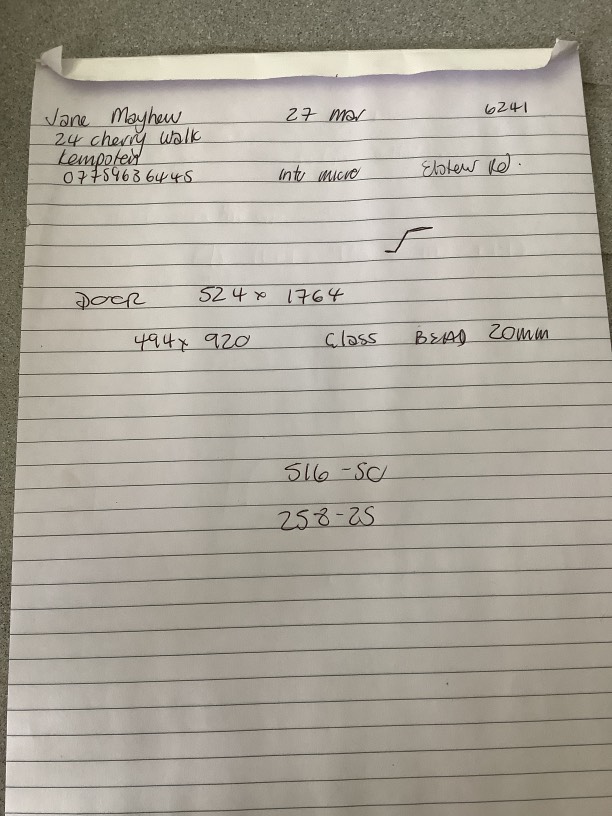 Jane Mayhew 27 mar 6241
24 cherry walk
Kempston
07759636445 into micro Elstow Rd.
DOOR 524 x 1764
494 x 920 Glass BEAD 20mm
516 - 50
258 - 25